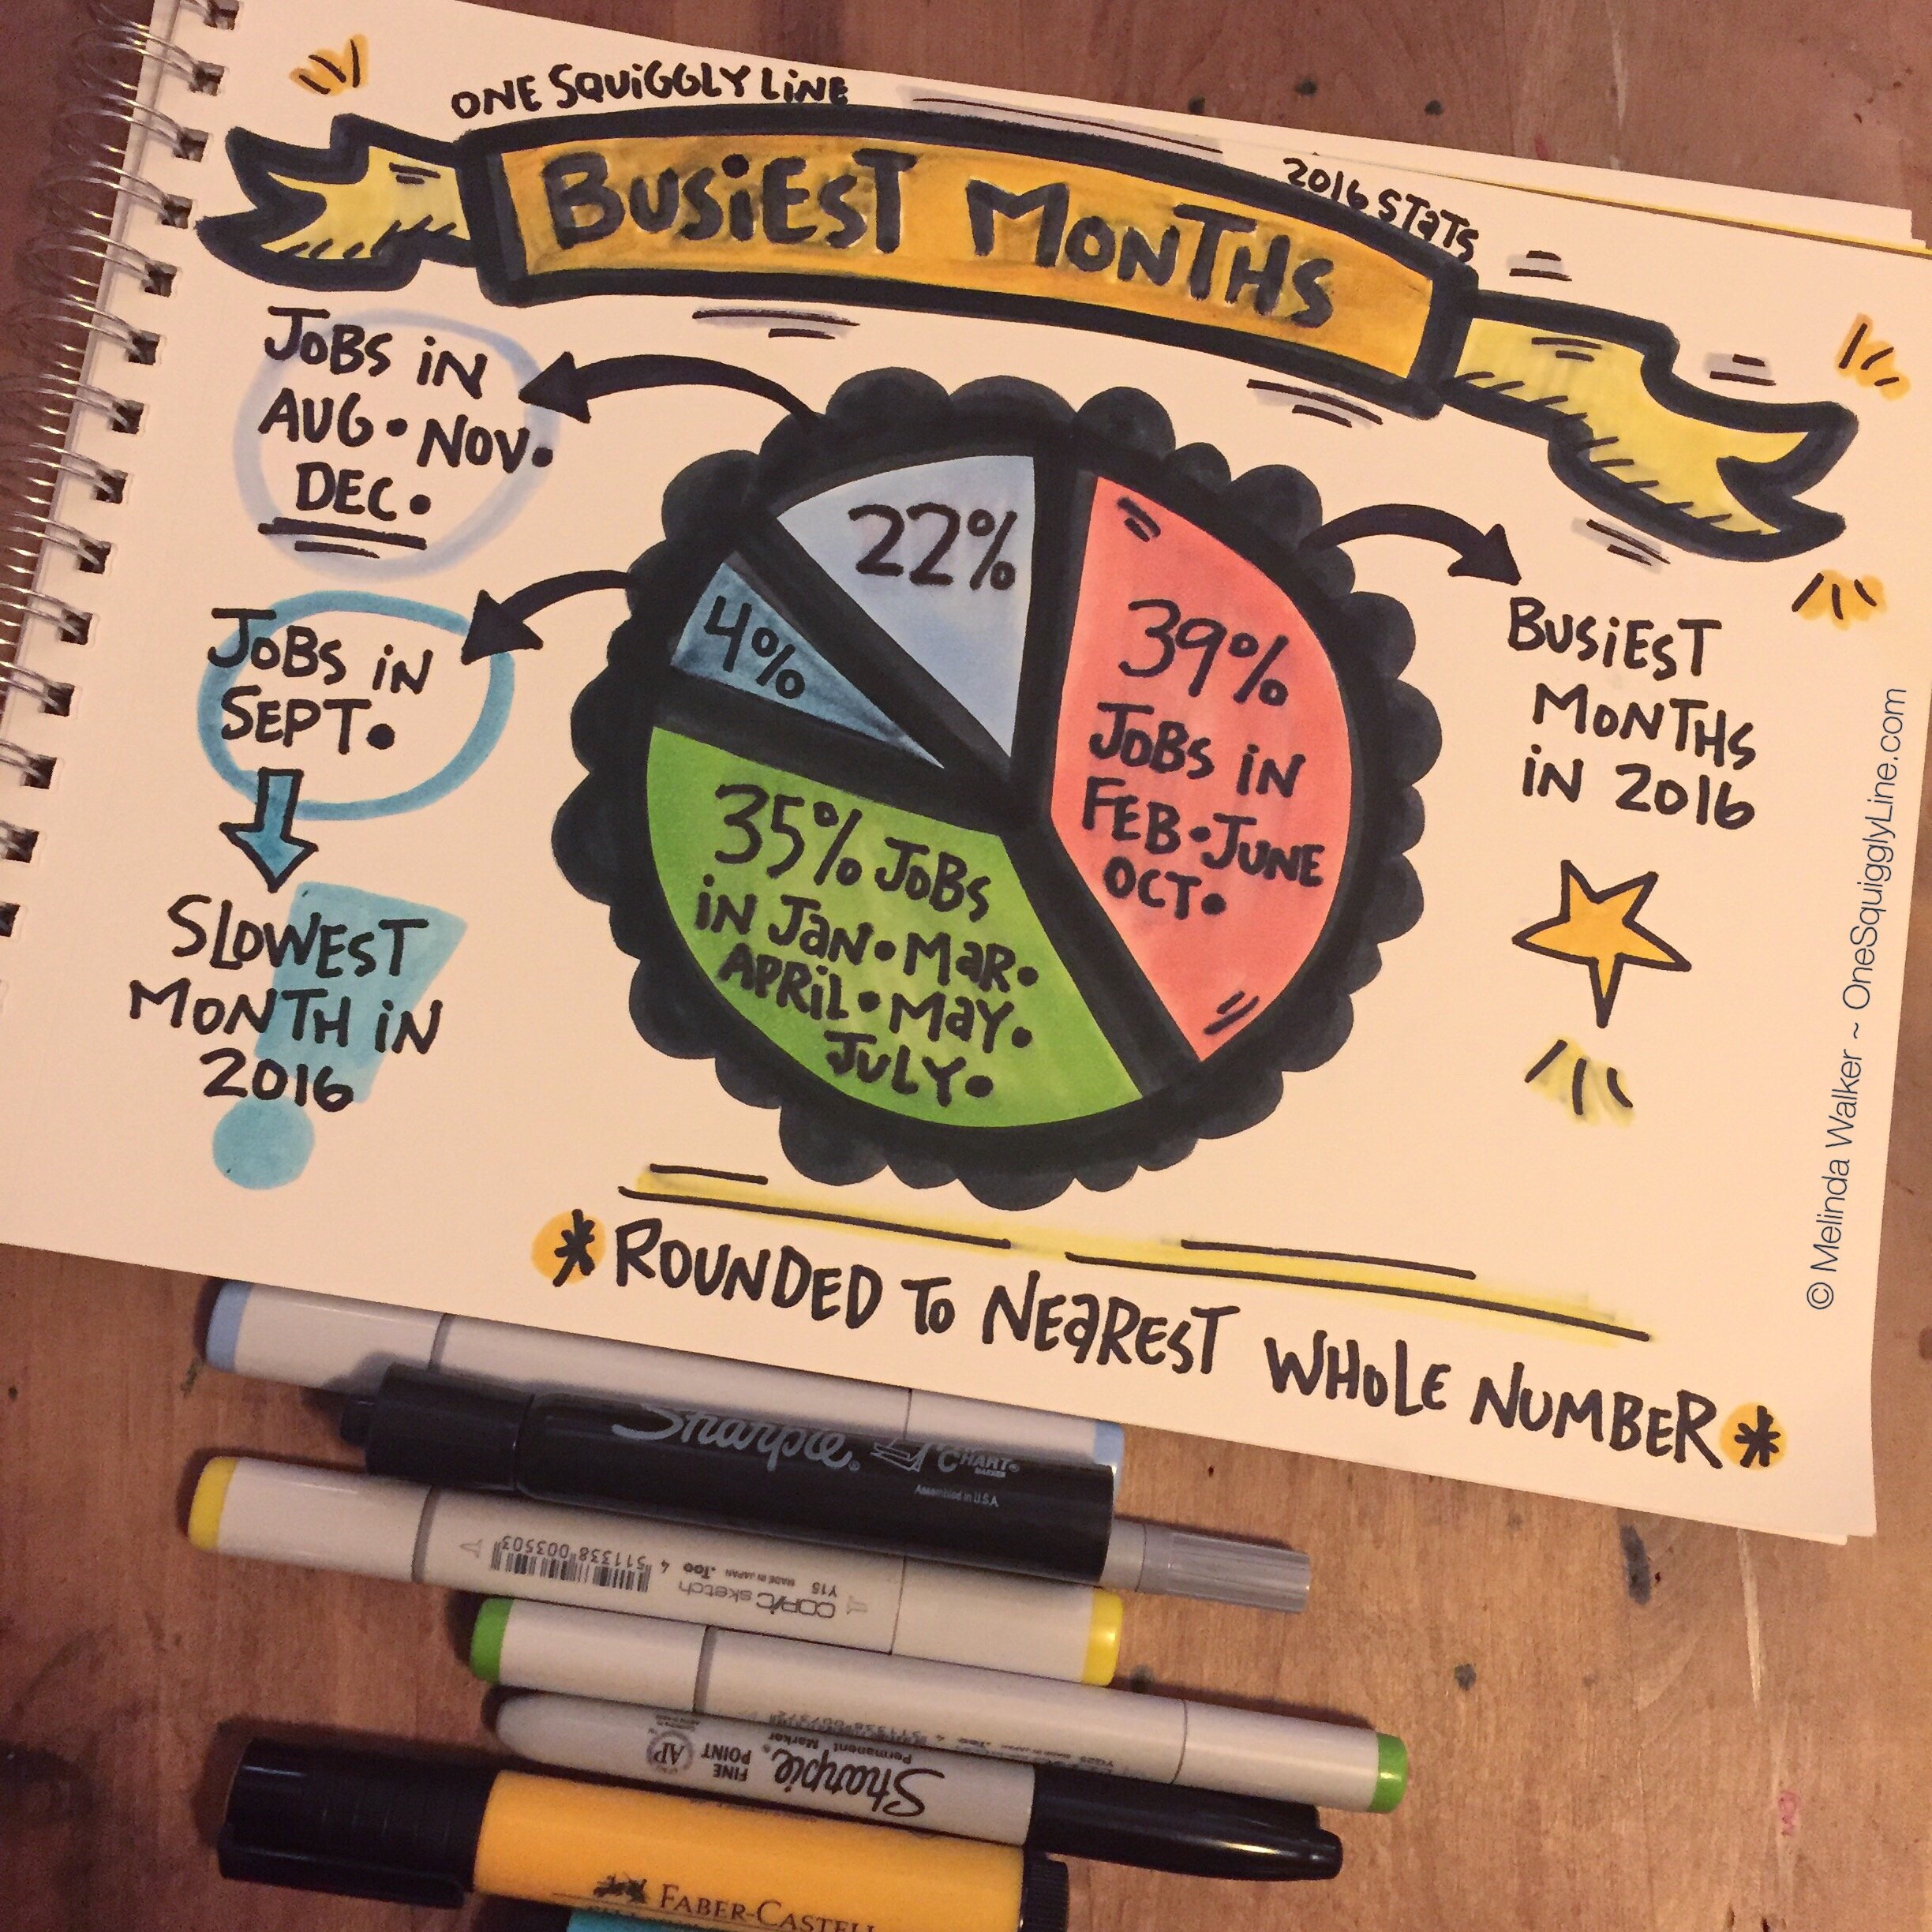 ONE SQUiGGLY LiNE
BUSiEST MONTHS
2016 STaTS
JOBS iN
AUG • NOV.
DEC.
JOBS iN
SEPT.
SLOWEST
MONTH iN
2016
22%
4%
39%
JOBS iN
FEB • JUNE
OCT.
35% JOBS
iN JaN • MaR •
APRiL • May.
JULY.
BUSiEST
MONTHS
iN 2016
© Melinda Walker ~ OneSquigglyLine.com
* ROUNDED To NEaREST WHOLE NUMBER *
Sharpie® CHART®
MARKER
Assembled in U.S.A.
COPIC sketch
Y15 MADE IN JAPAN .Too
4 511338 003503
Sharpie®
FINE
POINT
Permanent Marker
AP
YG25
4 511338 007372
FABER-CASTELL